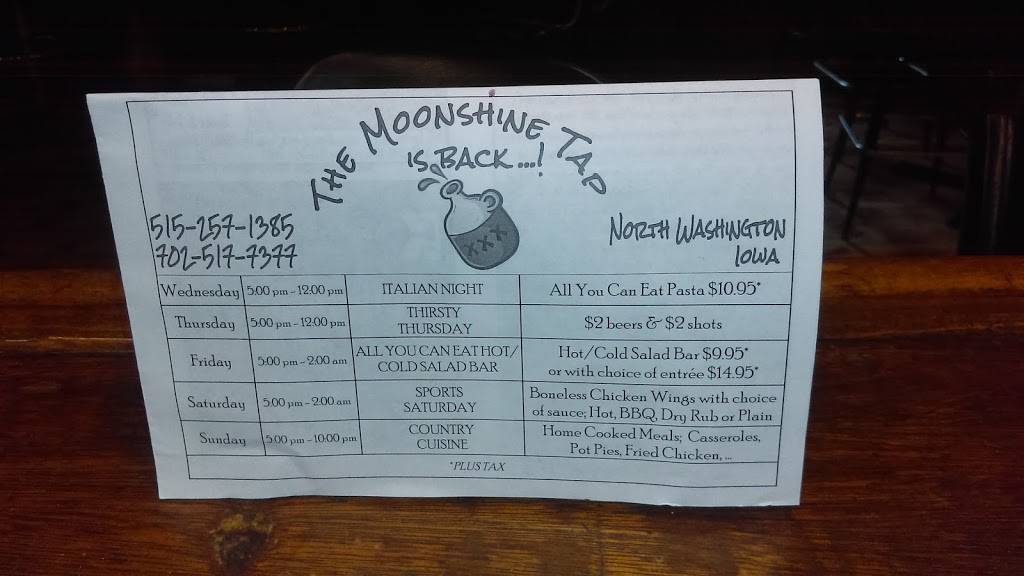 THE MOONSHINE TAP
IS BACK...!
515-257-1385
702-517-7377
NORTH WASHINGTON
IOWA
XXX
Wednesday 5:00 pm - 12:00 pm ITALIAN NIGHT All You Can Eat Pasta $10.95*
Thursday 5:00 pm - 12:00 pm THIRSTY THURSDAY $2 beers & $2 shots
Friday 5:00 pm - 2:00 am ALL YOU CAN EAT HOT/
COLD SALAD BAR
Hot/Cold Salad Bar $9.95*
or with choice of entrée $14.95*
Saturday 5:00 pm - 2:00 am SPORTS
SATURDAY
Boneless Chicken Wings with choice
of sauce; Hot, BBQ, Dry Rub or Plain
Sunday 5:00 pm - 10:00 pm COUNTRY
CUISINE
Home Cooked Meals; Casseroles,
Pot Pies, Fried Chicken, ...
*PLUS TAX